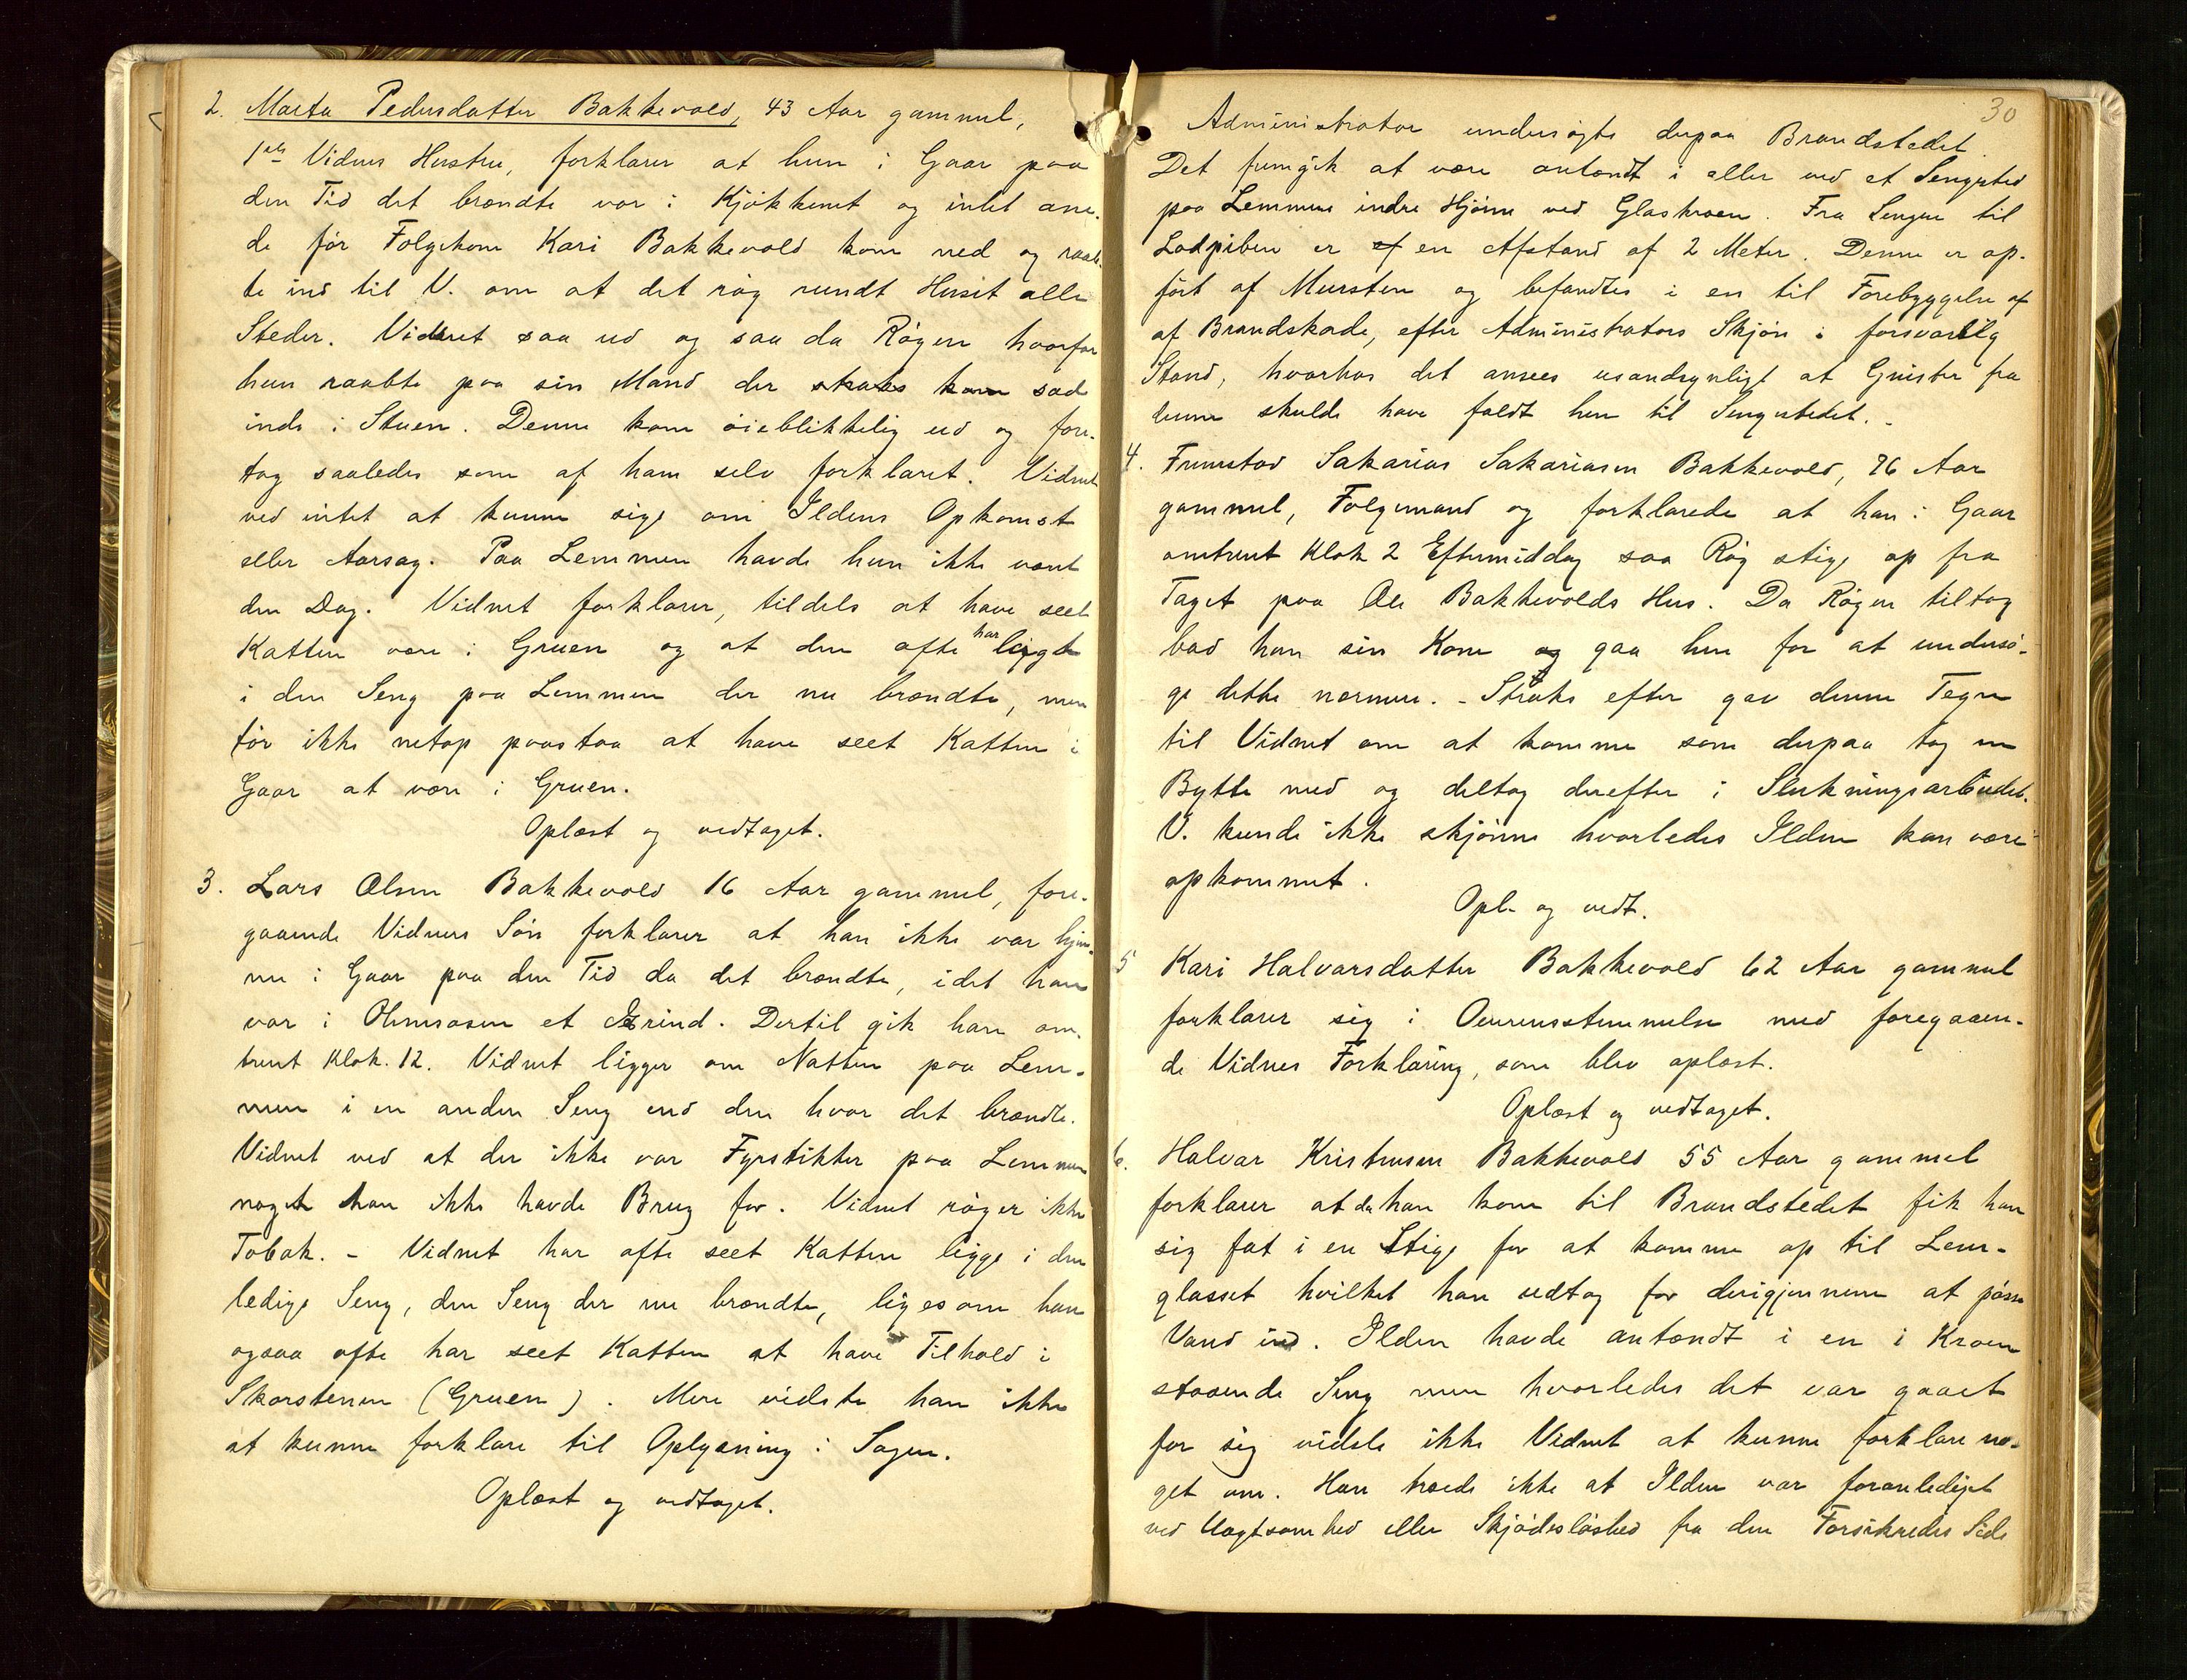 2. Marta Pedersdatter Bakkevold, 43 Aar gammel,
1ste Vidnes Hustru, forklarer at hun i Gaar paa
den Tid det brændte var i Kjøkkenet og intet ane-
de før Folgekone Kari Bakkevold kom ned og raab-
te ind til V. om at det røg rundt Huset alle
Steder. Vidnet saa ud og saa da Røgen hvorfor
hun raabte paa sin Mand der straks kom sad
inde i Stuen. Denne kom øieblikkelig ud og fore-
tog saaledes som af ham selv forklaret. Vidnet
ved intet at kunne sige om Ildens Opkomst
eller Aarsag. Paa Lemmen havde hun ikke vært
den Dag. Vidnet forklarer, tildels at have seet
Katten være i Gruen og at den ofte har ligget
i den Seng paa Lemmen der nu brændte, men
tør ikke netop paastaa at have seet Katten i
Gaar at være i Gruen.
Oplæst og vedtaget.
3. Lars Olsen Bakkevold 16 Aar gammel, fore-
gaaende Vidnes Søn forklarer at han ikke var hjem-
me i Gaar paa den Tid da det brændte, idet han
var i Ølensosen et Ærind. Dertil gik han om-
trent Klok. 12. Vidnet ligger om Natten paa Lem-
men i en anden Seng end den hvor det brændte.
Vidnet ved at der ikke var Fyrstikker paa Lemmen
noget han ikke havde Brug for. Vidnet røger ikke
Tobak. - Vidnet har ofte seet Katten ligge i den
ledige Seng, den Seng der nu brændte, ligesom han
ogsaa ofte har seet Katten at have Tilhold i
Skorstenen (Gruen). Mere vidste han ikke
at kunne forklare til Oplysning i Sagen.
Oplæst og vedtaget.
30
Administrator undersøgte derpaa Brandstedet.
Det fremgik at være antændt i eller ved et Sengested
paa Lemmens indre Hjørne ved Glaskroen. Fra Sengen til
Lodpiben er af en Afstand af 2 Meter. Denne er op-
ført af Mursten og befandtes i en til Forebyggelse af
af Brandskade, efter Administrators Skjøn i forsvarlig
Stand, hvorhos det ansees usandsynligt at Gnister fra
denne skulde have faldt hen til Sengestedet. -
4. Fremstod Sakarias Sakariasen Bakkevold, 76 Aar
gammel, Folgemand og forklarede at han i Gaar
omtrent Klok 2 Eftermiddag saa Røg stige op fra
Taget paa Ole Bakkevolds Hus. Da Røgen tiltog
bad han sin Kone og gaa hen for at undersø-
ge dette nærmere. - Straks efter gav denne Tegn
til Vidnet om at komme som derpaa tog en
Bytte med og deltog derefter i Slukningsarbeidet.
V. kunde ikke skjønne hvorledes Ilden kan være
opkommet.
Opl. og vedt.
5 Kari Halvarsdatter Bakkevold 62 Aar gammel
forklarer sig i Overensstemmelse med foregaaen-
de Vidnes Forklaring, som blev oplæst.
Oplæst og vedtaget.
6. Halvar Kristensen Bakkevold 55 Aar gammel
forklarer at da han kom til Brandstedet fik han
sig fat i en Stige for at komme op til Lem-
glasset hvilket han udtog for derigjennem at pøse
Vand ind. Ilden havde antændt i en i Kroen
staaende Seng men hvorledes det var gaaet
for sig vidste ikke Vidnet at kunne forklare no-
get om. Han troede ikke at Ilden var foranlediget
ved Uagtsomhed eller Skjødesløshed fra den Forsikredes Side